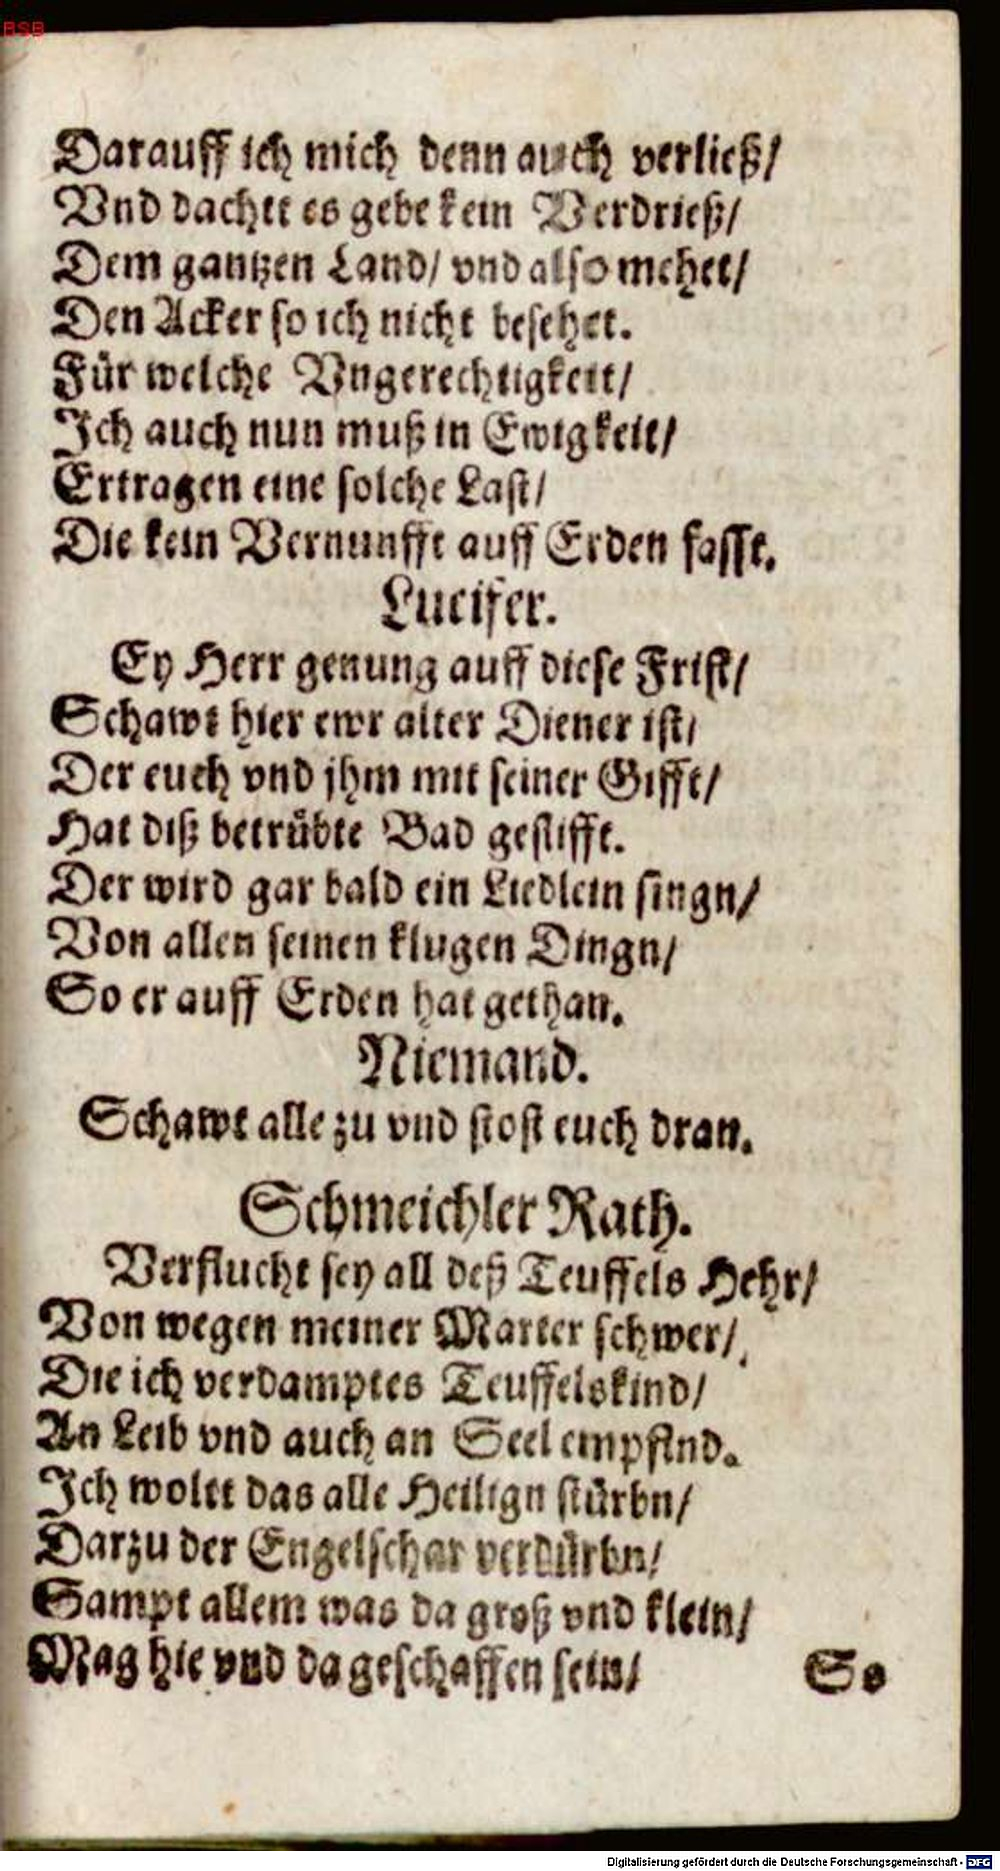 BSB
Darauff ich mich denn auch verließ/
Vnd dachtt es gebe kein Verdrieß/
Dem gantzen Land/ vnd also mehet/
Den Acker so ich nicht besehet.
Für welche Vngerechtigkeit/
Ich auch nun muß in Ewigkeit/
Ertragen eine solche Last/
Die kein Vernunfft auff Erden fasst.
Lucifer.
Ey Herr genung auff diese Frist/
Schawt hier ewr alter Diener ist/
Der euch vnd jhm mit seiner Gifft/
Hat diß betrübte Bad gestifft.
Der wird gar bald ein Liedlein singn/
Von allen seinen klugen Dingn/
So er auff Erden hat gethan.
Niemand.
Schawt alle zu vnd stost euch dran.
Schmeichler Rath.
Verflucht sey all deß Teuffels Hehr/
Von wegen meiner Marter schwer/
Die ich verdamptes Teuffelskind/
An Leib vnd auch an Seel empfind.
Ich woltt das alle Heilign stürbn/
Darzu der Engelschar verdürbn/
Sampt allem was da groß vnd klein/
Mag hie vnd da geschaffen sein/
So
Digitalisierung gefördert durch die Deutsche Forschungsgemeinschaft - DFG